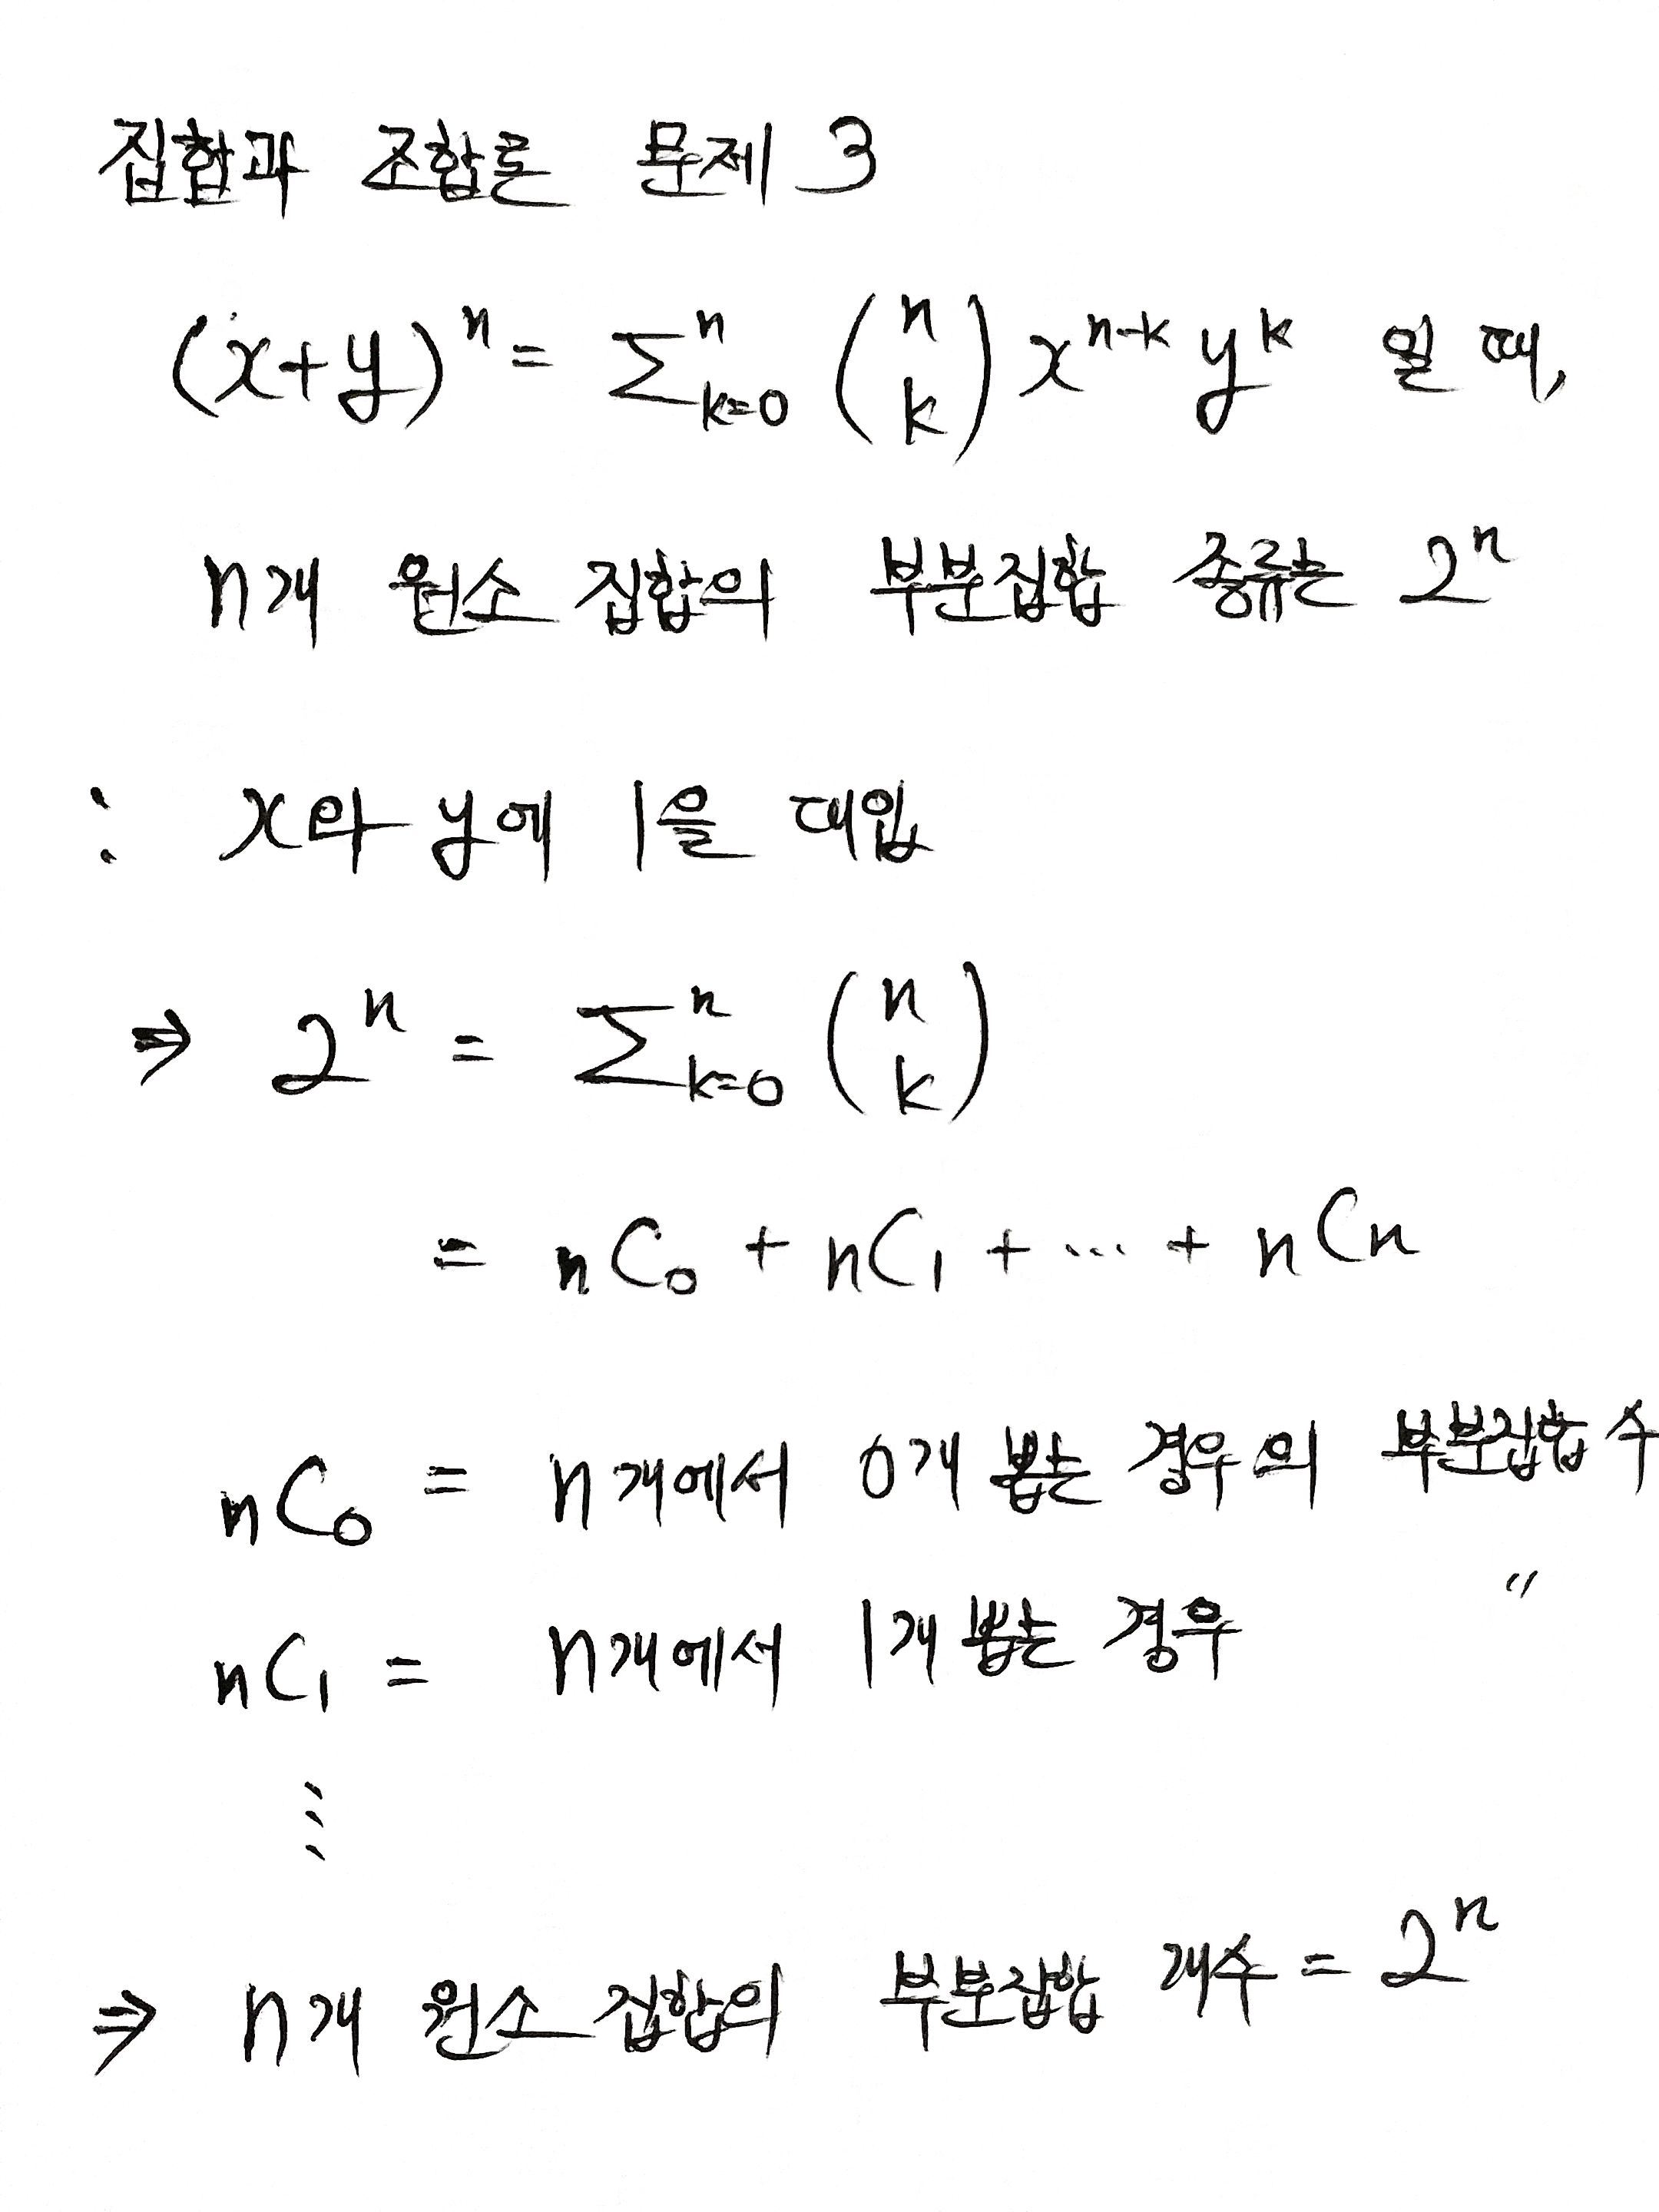 집합과 조합론 문제 3
(x+y)ⁿ = Σⁿₖ₌₀ (n k) xⁿ⁻ᵏ yᵏ 일 때,
n개 원소 집합의 부분집합 종류는 2ⁿ
: x와 y에 1을 대입
⇒ 2ⁿ = Σⁿₖ₌₀ (n k)
= nC₀ + nC₁ + ... + nCn
nC₀ = n개에서 0개 뽑는 경우의 부분집합 수
nC₁ = n개에서 1개 뽑는 경우 〃
⋮
⇒ n개 원소 집합의 부분집합 개수 = 2ⁿ